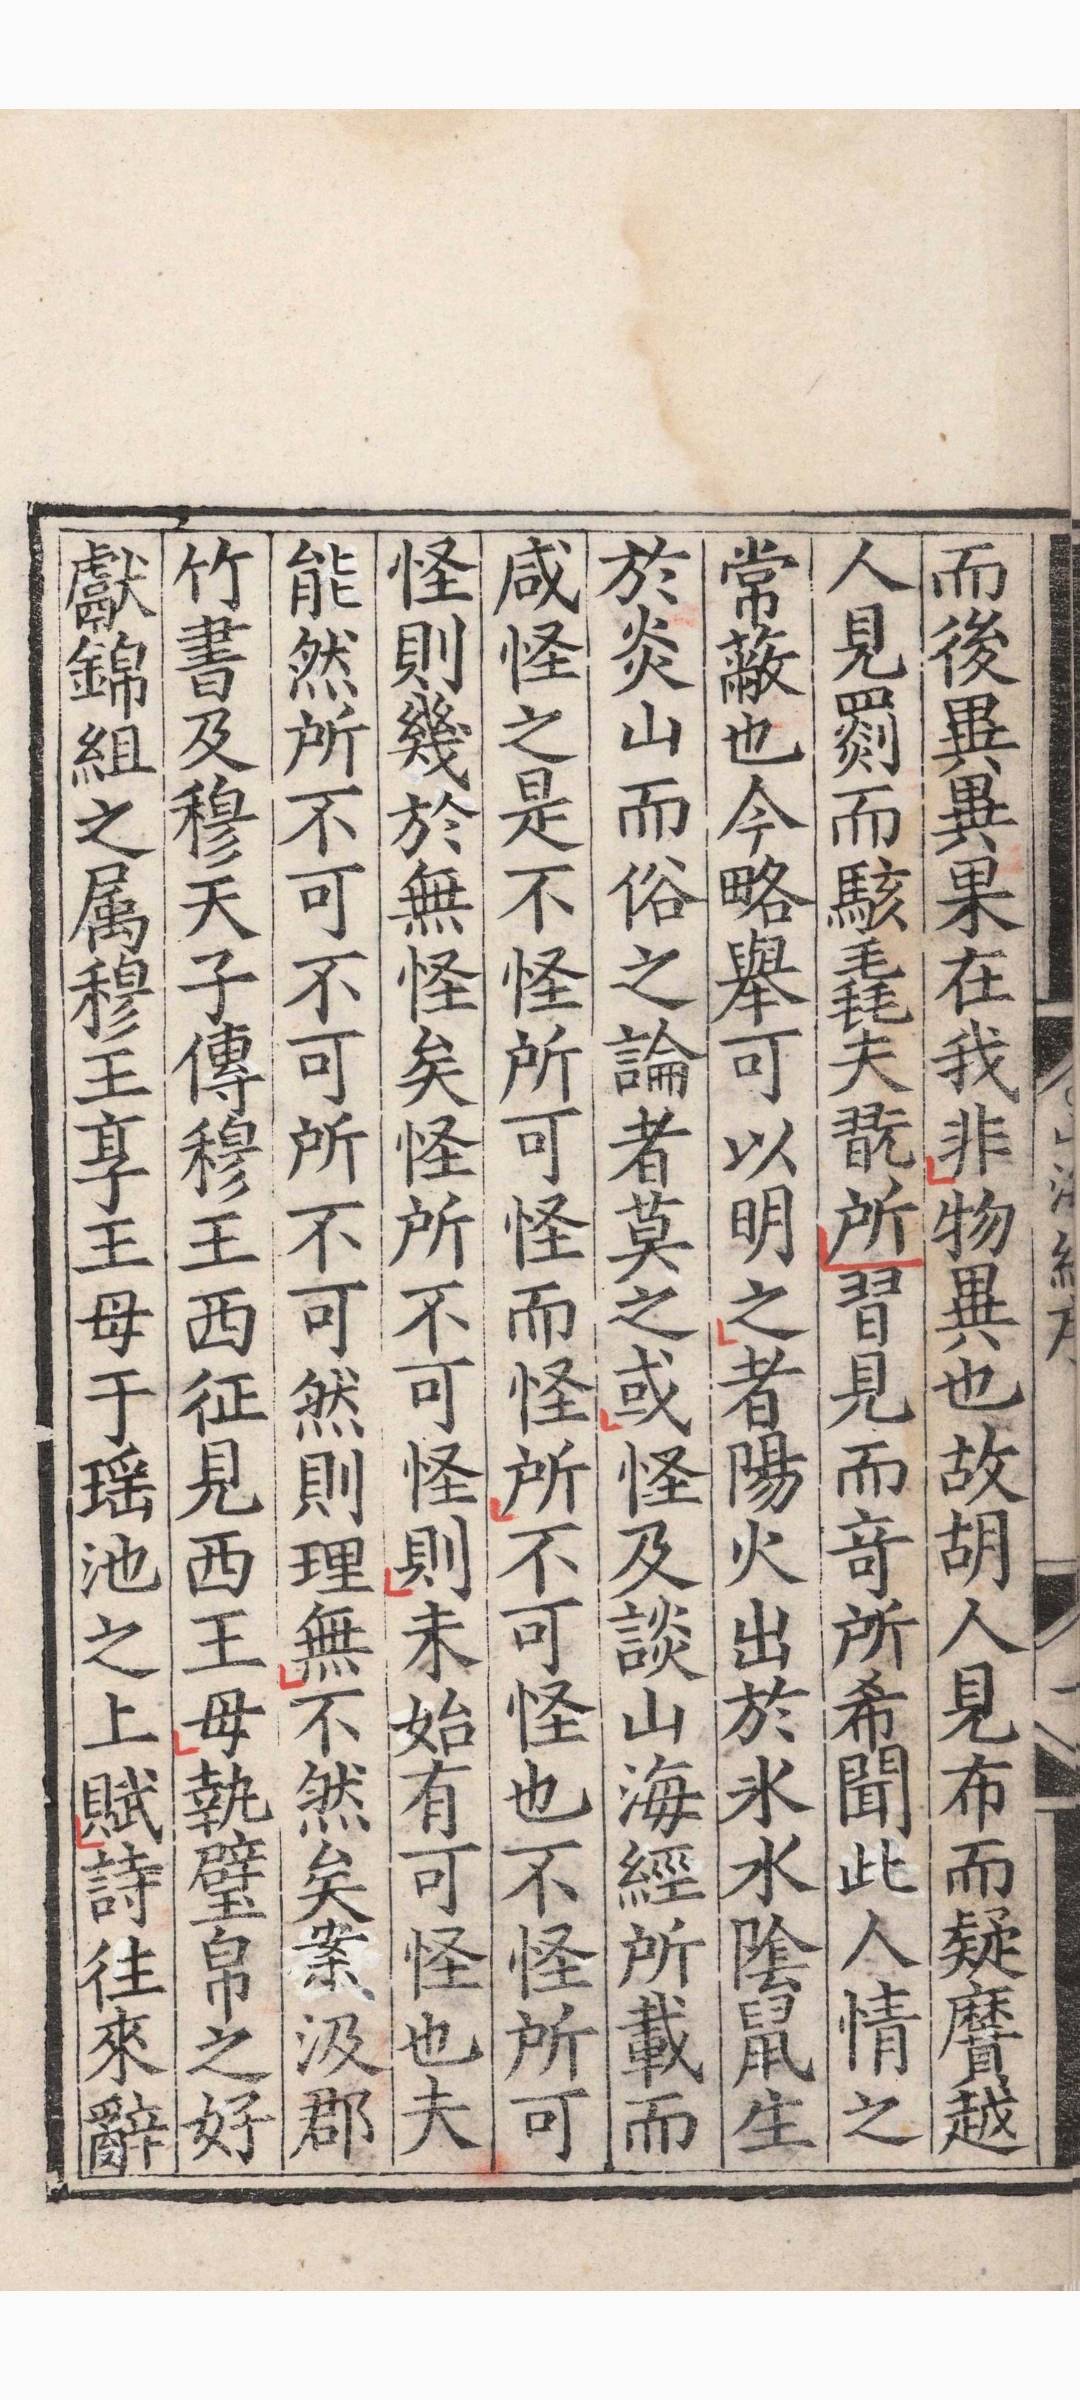 而後異異果在我非物異也故胡人見布而疑黂越
人見罽而駭毳夫翫所習見而竒所希聞此人情之
常蔽也今略舉可以明之者陽火出於氷水陰鼠生
於炎山而俗之論者莫之或怪及談山海經所載而
咸怪之是不怪所可怪而怪所不可怪也不怪所可
怪則幾於無怪矣怪所不可怪則未始有可怪也夫
能然所不可不可所不可然則理無不然矣案汲郡
竹書及穆天子傳穆王西征見西王母執璧帛之好
獻錦組之属穆王享王母于瑶池之上賦詩往來辭